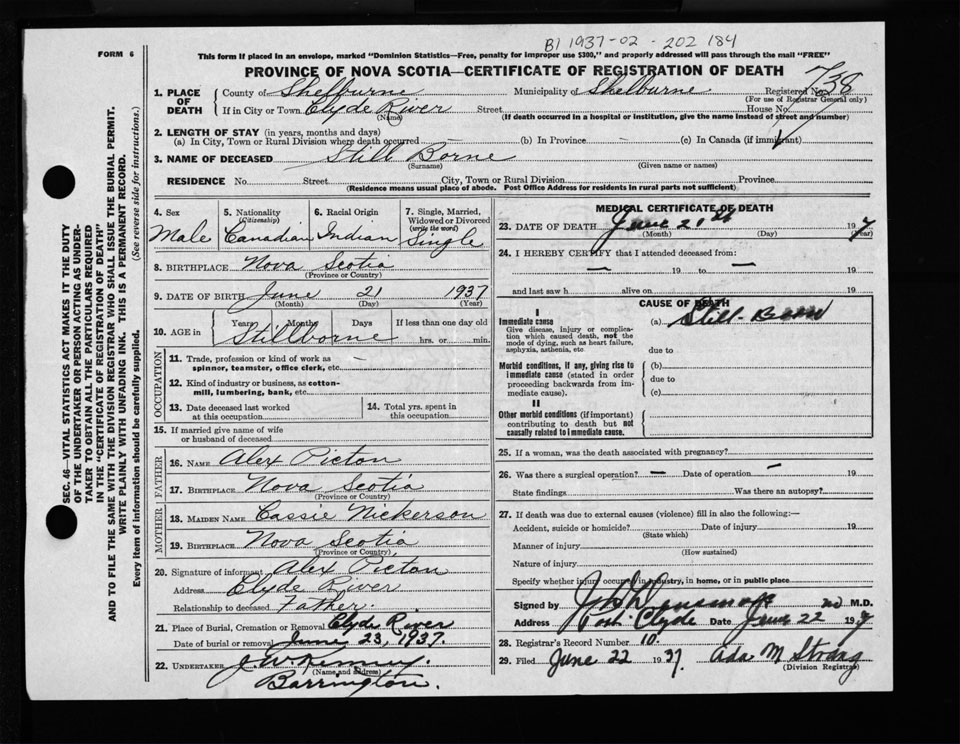 B1 1937-02-202 184
FORM 6
This form if placed in an envelope, marked "Dominion Statistics—Free, penalty for improper use $300," and properly addressed will pass through the mail "FREE"
PROVINCE OF NOVA SCOTIA—CERTIFICATE OF REGISTRATION OF DEATH
SEC. 46—VITAL STATISTICS ACT MAKES IT THE DUTY
OF THE UNDERTAKER OR PERSON ACTING AS UNDER-
TAKER TO OBTAIN ALL THE PARTICULARS REQUIRED
IN THE "CERTIFICATE OF REGISTRATION OF DEATH"
AND TO FILE THE SAME WITH THE DIVISION REGISTRAR WHO SHALL ISSUE THE BURIAL PERMIT.
WRITE PLAINLY WITH UNFADING INK. THIS IS A PERMANENT RECORD.
Every item of information should be carefully supplied. (See reverse side for instructions.)
1. PLACE OF DEATH
County of Shelburne Municipality of Shelburne Registered No. 738
(For use of Registrar General only)
If in City or Town Clyde River Street House No.
(Name) (If death occurred in a hospital or institution, give the name instead of street and number)
2. LENGTH OF STAY (in years, months and days)
(a) In City, Town or Rural Division where death occurred (b) In Province (c) In Canada (if immigrant)
3. NAME OF DECEASED Still Borne
(Surname) (Given name or names)
RESIDENCE No. Street City, Town or Rural Division Province
(Residence means usual place of abode. Post Office Address for residents in rural parts not sufficient)
4. Sex Male
5. Nationality (Citizenship) Canadian
6. Racial Origin Indian
7. Single, Married, Widowed or Divorced (write the word) Single
8. BIRTHPLACE Nova Scotia
(Province or Country)
9. DATE OF BIRTH June 21 1937
(Month) (Day) (Year)
10. AGE in Years Months Days If less than one day old
Stillborne hrs. or min.
OCCUPATION
11. Trade, profession or kind of work as
spinner, teamster, office clerk, etc. —
12. Kind of industry or business, as cotton-
mill, lumbering, bank, etc.
13. Date deceased last worked
at this occupation
14. Total yrs. spent in
this occupation
15. If married give name of wife
or husband of deceased
FATHER
16. NAME Alex Picton
17. BIRTHPLACE Nova Scotia
(Province or Country)
MOTHER
18. MAIDEN NAME Cassie Nickerson
19. BIRTHPLACE Nova Scotia
(Province or Country)
20. Signature of informant Alex Picton
Address Clyde River
Relationship to deceased Father.
21. Place of Burial, Cremation or Removal Clyde River
Date of burial or removal June 23, 1937.
22. UNDERTAKER
(Name and address)
Barrington.
MEDICAL CERTIFICATE OF DEATH
23. DATE OF DEATH June 21st 1937
(Month) (Day) (Year)
24. I HEREBY CERTIFY that I attended deceased from:
— 19 to — 19
and last saw h alive on 19
CAUSE OF DEATH
I
Immediate cause (a) Still-Born
Give disease, injury or complica-
tion which caused death, not the
mode of dying, such as heart failure,
asphyxia, asthenia, etc due to
Morbid conditions, if any, giving rise to (b)
immediate cause (stated in order
proceeding backwards from im- due to
mediate cause). (c)
II
Other morbid conditions (if important)
contributing to death but not
causally related to immediate cause.
25. If a woman, was the death associated with pregnancy?
26. Was there a surgical operation? — Date of operation — 19
State findings Was there an autopsy?
27. If death was due to external causes (violence) fill in also the following:—
Accident, suicide or homicide? Date of injury 19
(State which)
Manner of injury
(How sustained)
Nature of injury
Specify whether injury occurred in industry, in home, or in public place
Signed by M.D.
Address Port Clyde Date June 22 1937
28. Registrar's Record Number 10.
29. Filed June 22 1937. Ada M
(Division Registrar)